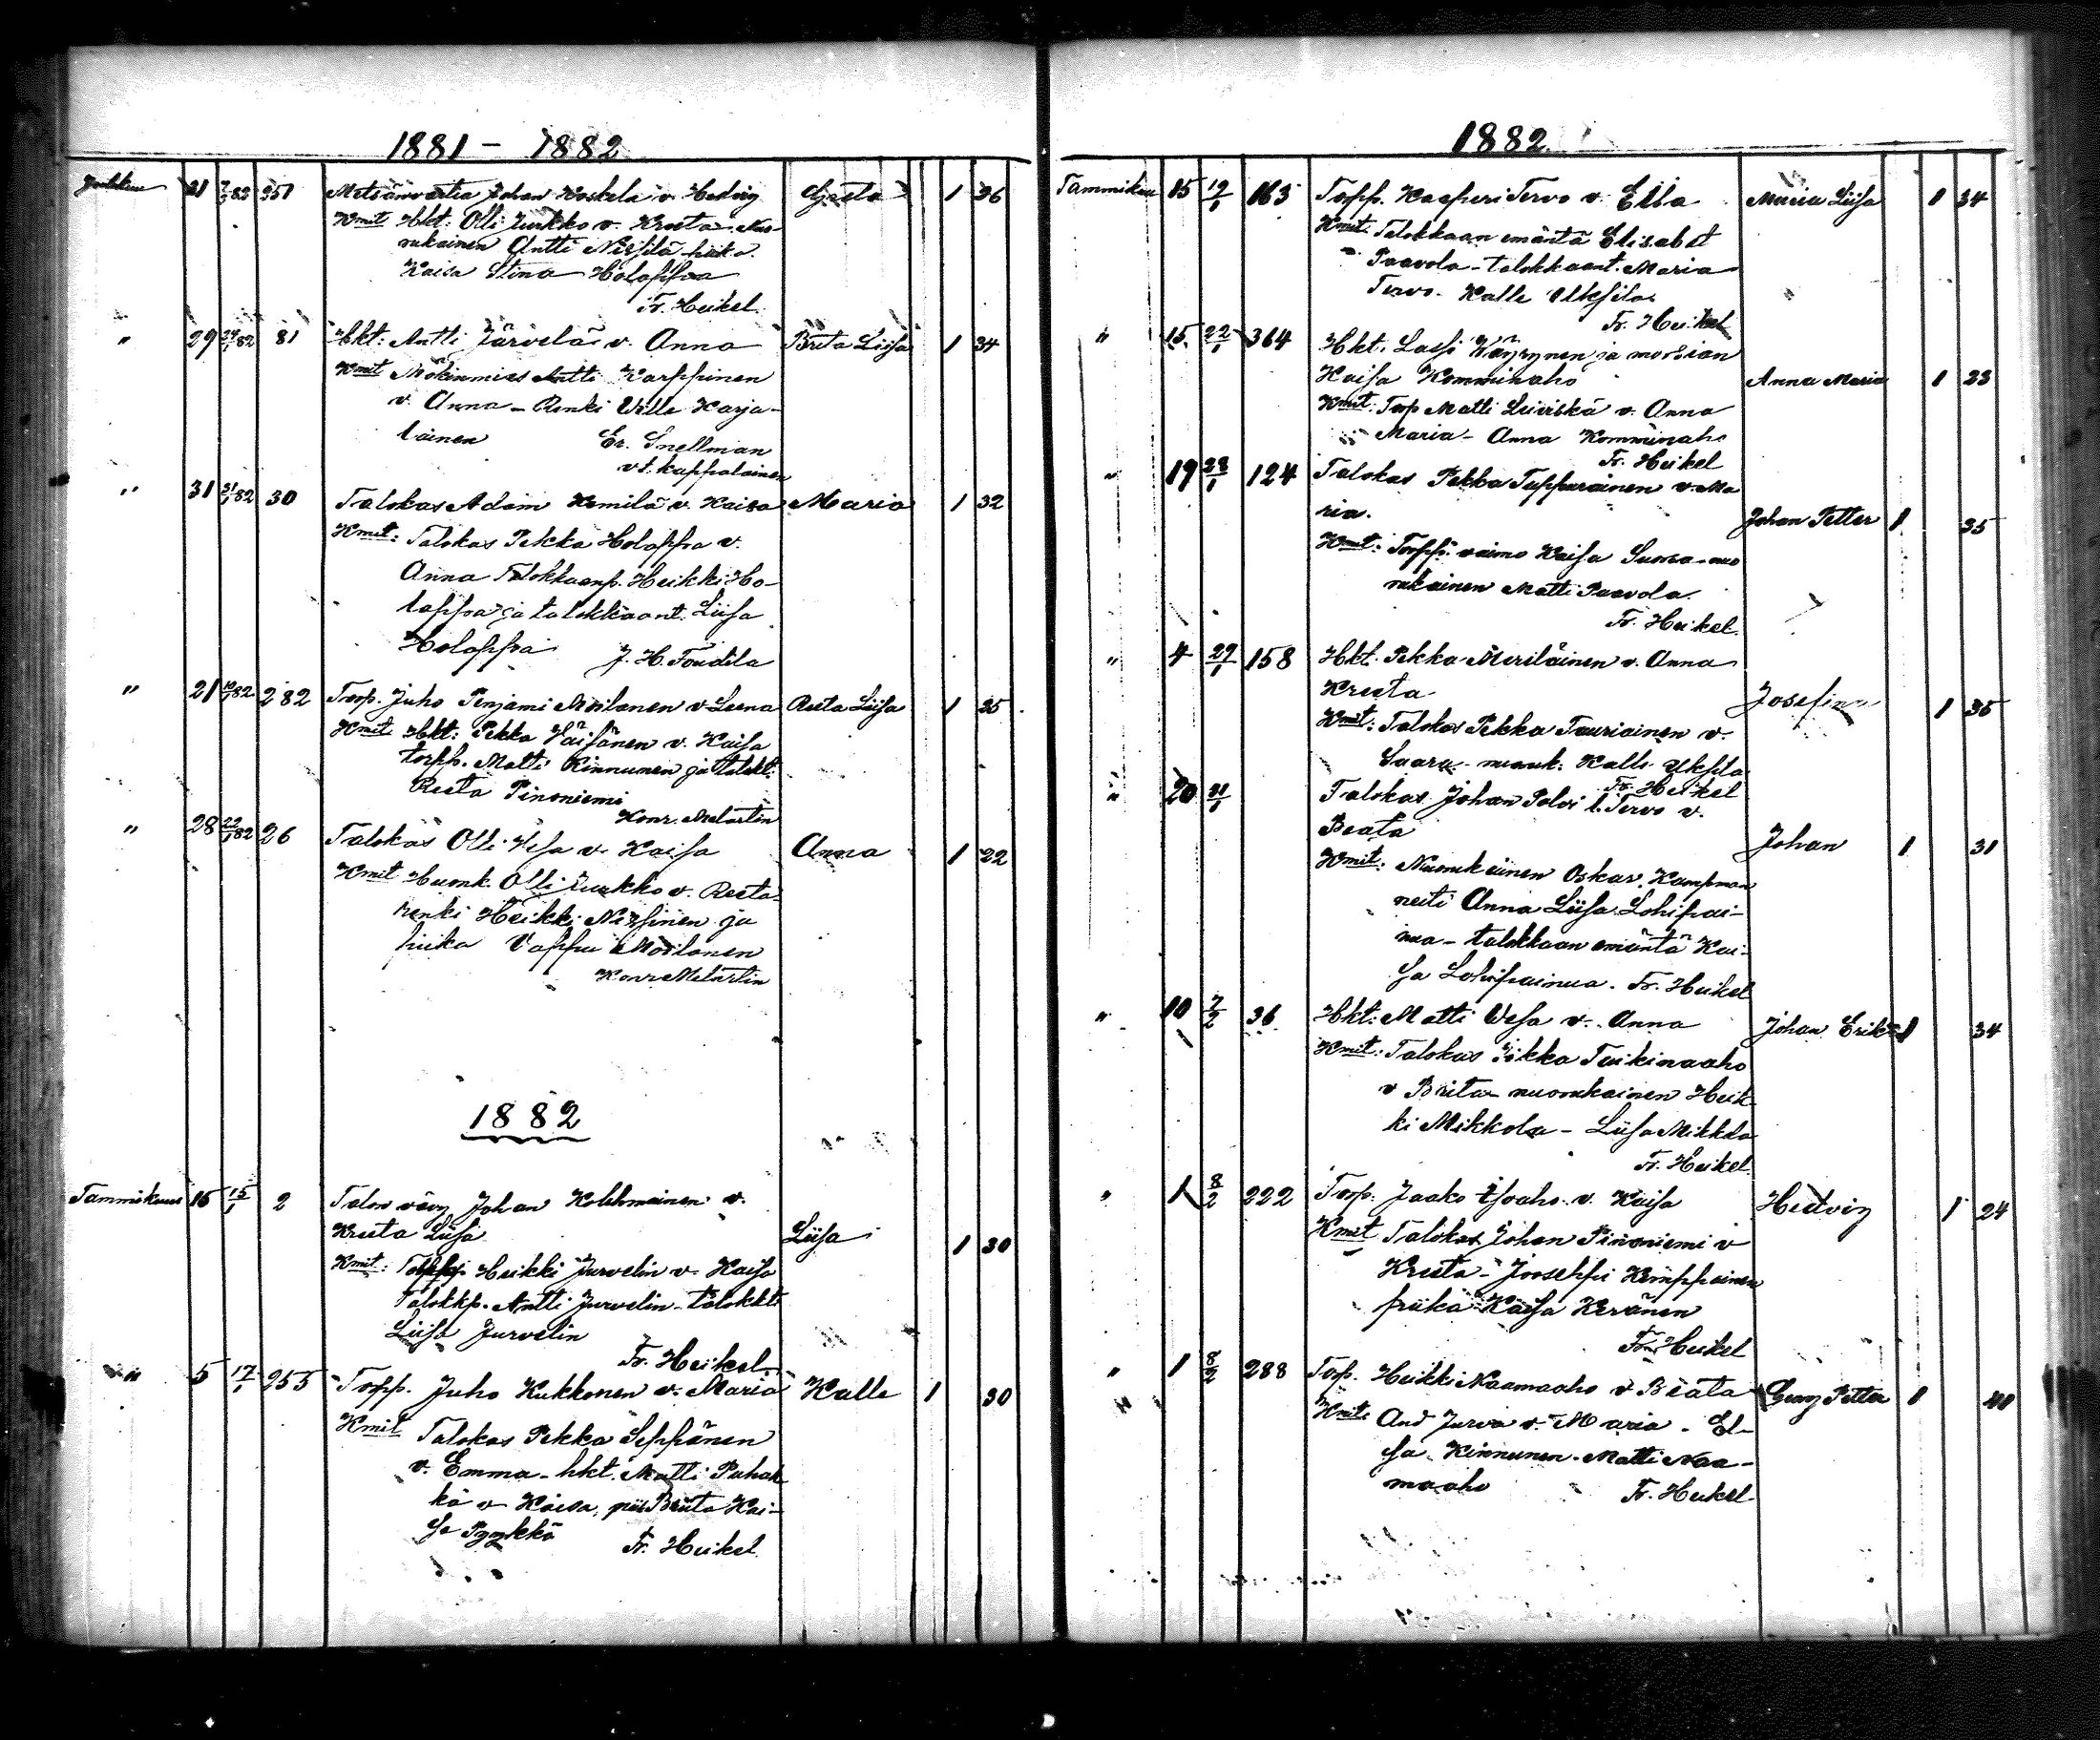 1881 – 1882
Joulukuu 21 7/1 82 251 Metsänvartia Johan Koskela v. Hedvig Greta 1 36
Kmit Hkt: Olli Jurkko v. Kreeta – Nuo-
rukainen Antti Nissilä – piika
Kaisa Stina Holappa
Fr. Heikel.
" 29 24/1 82 81 Hkt: Antti Järvelä v. Anna Brita Liisa 1 34
Kmit Mökinmies Antti Karppinen
v. Anna – Renki Wille Karja-
lainen Er. Snellman
vt. kappalainen
" 31 31/1 82 30 Talokas Adam Komilä v. Kaisa Maria 1 32
Kmit: Talokas Pekka Holappa v.
Anna Talokkaanp. Heikki Ho-
lappa ja talokkaant. Liisa
Holappa J. H. Toudila
" 21 10/1 82 282 Torp. Juho Penjami Moilanen v. Leena Reeta Liisa 1 35
Kmit Hkt: Pekka Väisänen v. Kaisa
torpp. Matti Kinnunen ja talokt:
Reeta Pinoniemi
Konr. Melartin
" 28 22/1 82 26 Talokas Olli Vesa v. Kaisa Anna 1 22
Kmit Huonk. Olli Jurkko v. Reeta
renki Heikki Nissinen ja
piika Vappu Moilanen
Konr Melartin
1882
Tammikuu 16 15/1 2 Talon vävy Johan Kohlmainen v.
Kreeta Liisa Liisa 1 30
Kmit: Heikki Jurvelin v. Kaisa
Talokkp. Antti Jurvelin – talokkt.
Liisa Jurvelin
Fr. Heikel.
" 5 17/1 255 Torpp. Juho Kukkonen v. Maria Kalle 1 30
Kmit Talokas Pekka Seppänen
v. Emma – hkt. Matti Puhak-
ka v. Kaisa, pii. Briita Kai-
sa Pyykkö Fr. Heikel.
1882
Tammikuu 15 19/1 163 Torpp. Kasperi Tervo v. Ella Maria Liisa 1 34
Kmit: Talokkaan emäntä Elisabet
Paavola – talokkaant. Maria
Tervo. Kalle Uksila
Fr. Heikel
" 15 22/1 364 Hkt. Lassi Wäyrynen ja morsian
Kaisa Komminaho Anna Maria 1 23
Kmit: Torp Matti Leiviskä v. Anna
Maria – Anna Komminaho
Fr. Heikel
" 19 28/1 124 Talokas Pekka Tuppurainen v. Ma
ria. Johan Petter 1 35
Kmit: Torpp: vaimo Kaisa Suova – nuo
rukainen Matti Paavola.
Fr. Heikel.
" 4 29/1 158 Hkt. Pekka Meriläinen v. Anna
Kreeta Josefina 1 35
Kmit: Talokas Pekka Tauriainen v.
Saara – nuoruk: Kalle Uksila
Fr. Heikel
" 20 31/1 Talokas Johan Polvi l. Tervo v.
Beata Johan 1 31
Kmit: Nuorukainen Oskar Kampman
neiti Anna Liisa Lohipai-
nua – talokkaan emäntä Kai-
sa Lohipainua. Fr. Heikel
" 10 7/2 36 Hkt: Matti Vesa v. Anna Johan Erik 1 34
Kmit: Talokas Pekka Tuikinaaho
v Briita nuorukainen Heik-
ki Mikkola – Liisa Mikkola
Fr. Heikel.
" 1 8/2 222 Torp: Jaako Isoaho v. Kaisa Hedvig 1 24
Kmit Talokas Johan Pinoniemi v
Kreeta – Jooseppi Kemppainen
piika Kaisa Keränen
Fr. Heikel
" 1 8/2 288 Torp. Heikki Naamaaho v Beata Georg Petter 1 40
Kmit: And Jurva v. Maria – El-
sa Kinnunen – Matti Naa-
maaho Fr. Heikel.